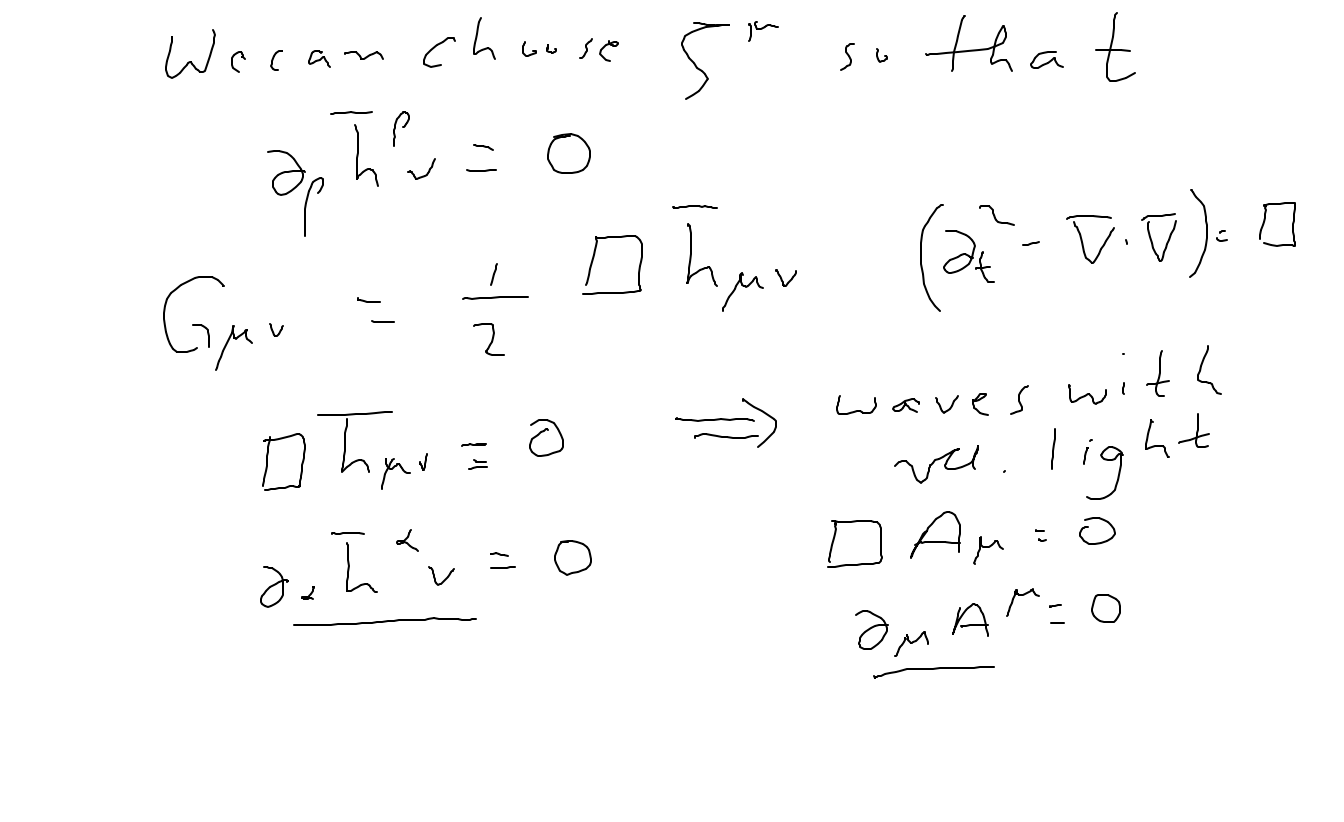 We can choose ζ^μ so that
∂_ρ h̄^ρ_ν = 0
G_μν = 1/2 □ h̄_μν (∂_t^2 - ∇·∇) = □
□ h̄_μν = 0 ⇒ waves with
vel. light
□ A_μ = 0
∂_α h̄^α_ν = 0
∂_μ A^μ = 0